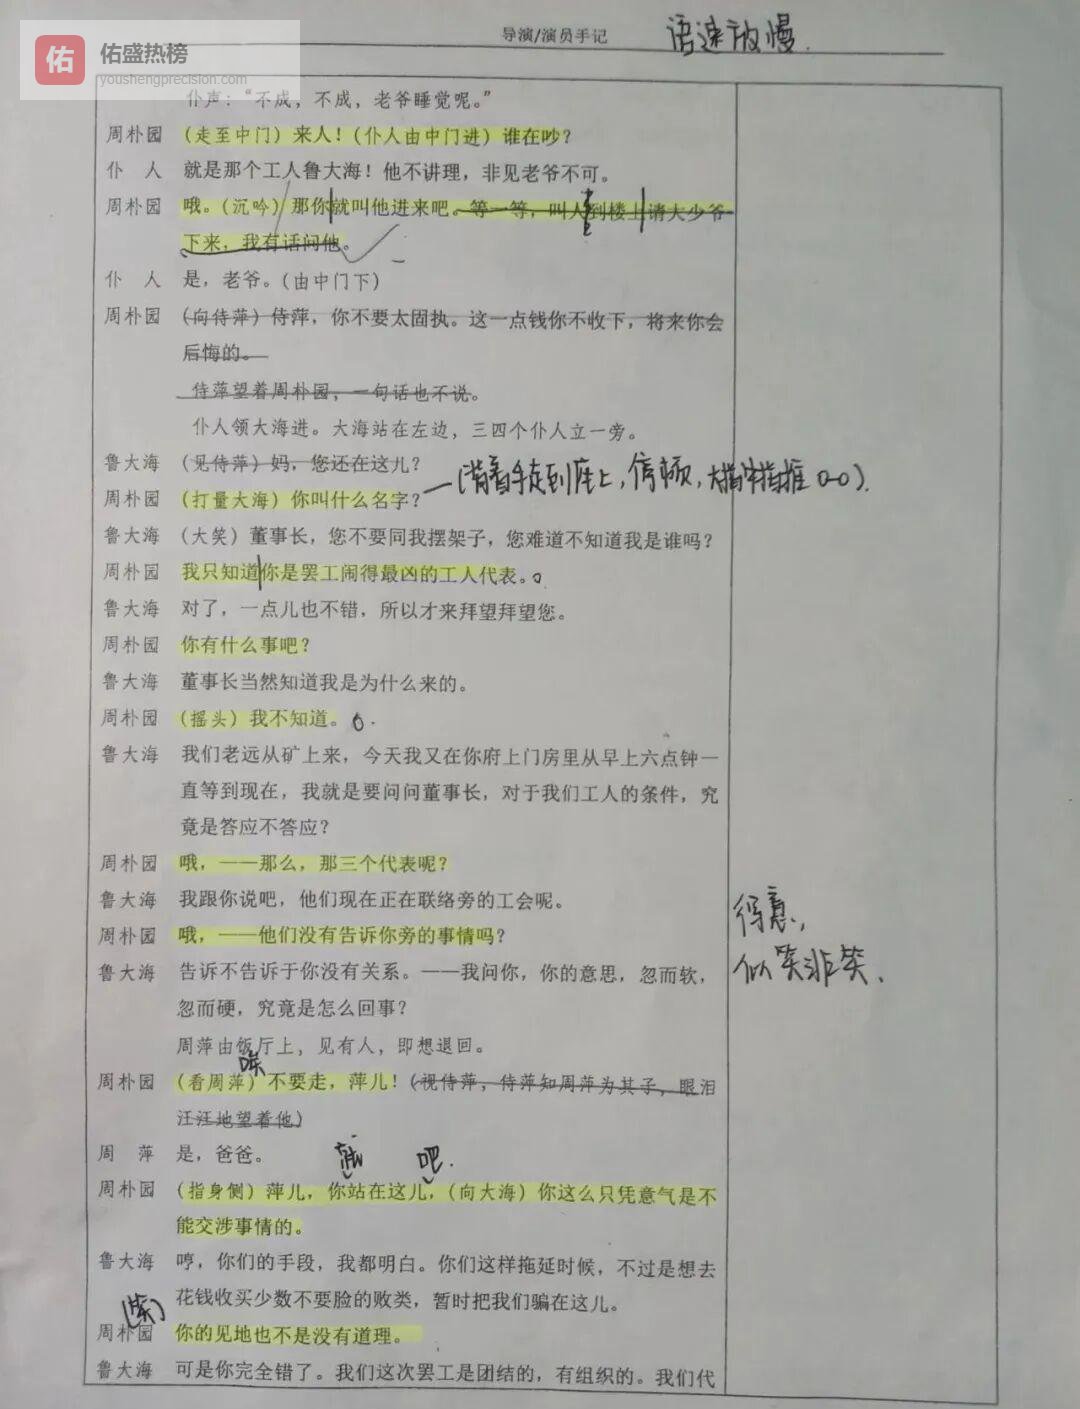 佑
佑盛热榜
youshengprecision.com
导演/演员手记
语速放慢.
仆声：“不成，不成，老爷睡觉呢。”
周朴园 （走至中门）来人！（仆人由中门进）谁在吵？
仆 人 就是那个工人鲁大海！他不讲理，非见老爷不可。
周朴园 哦。（沉吟）那你就叫他进来吧。等一等，叫人到楼上请大少爷
下来，我有话问他。
仆 人 是，老爷。（由中门下）
周朴园 （向侍萍）侍萍，你不要太固执。这一点钱你不收下，将来你会
后悔的。
侍萍望着周朴园，一句话也不说。
仆人领大海进。大海站在左边，三四个仆人立一旁。
鲁大海 （见侍萍）妈，您还在这儿？
周朴园 （打量大海）你叫什么名字？
（背着手走到座上，停顿，大拇指推 0-0）.
鲁大海 （大笑）董事长，您不要同我摆架子，您难道不知道我是谁吗？
周朴园 我只知道你是罢工闹得最凶的工人代表。
鲁大海 对了，一点儿也不错，所以才来拜望拜望您。
周朴园 你有什么事吧？
鲁大海 董事长当然知道我是为什么来的。
周朴园 （摇头）我不知道。
鲁大海 我们老远从矿上来，今天我又在你府上门房里从早上六点钟一
直等到现在，我就是要问问董事长，对于我们工人的条件，究
竟是答应不答应？
周朴园 哦，——那么，那三个代表呢？
鲁大海 我跟你说吧，他们现在正在联络旁的工会呢。
得意，
周朴园 哦，——他们没有告诉你旁的事情吗？
似笑非笑.
鲁大海 告诉不告诉于你没有关系。——我问你，你的意思，忽而软，
忽而硬，究竟是怎么回事？
周萍由饭厅上，见有人，即想退回。
唉
周朴园 （看周萍）不要走，萍儿！（视侍萍，侍萍知周萍为其子，眼泪
汪汪地望着他）
周 萍 是，爸爸。
就 吧.
周朴园 （指身侧）萍儿，你站在这儿，（向大海）你这么只凭意气是不
能交涉事情的。
鲁大海 哼，你们的手段，我都明白。你们这样拖延时候，不过是想去
花钱收买少数不要脸的败类，暂时把我们骗在这儿。
（笑）
周朴园 你的见地也不是没有道理。
鲁大海 可是你完全错了。我们这次罢工是团结的，有组织的。我们代